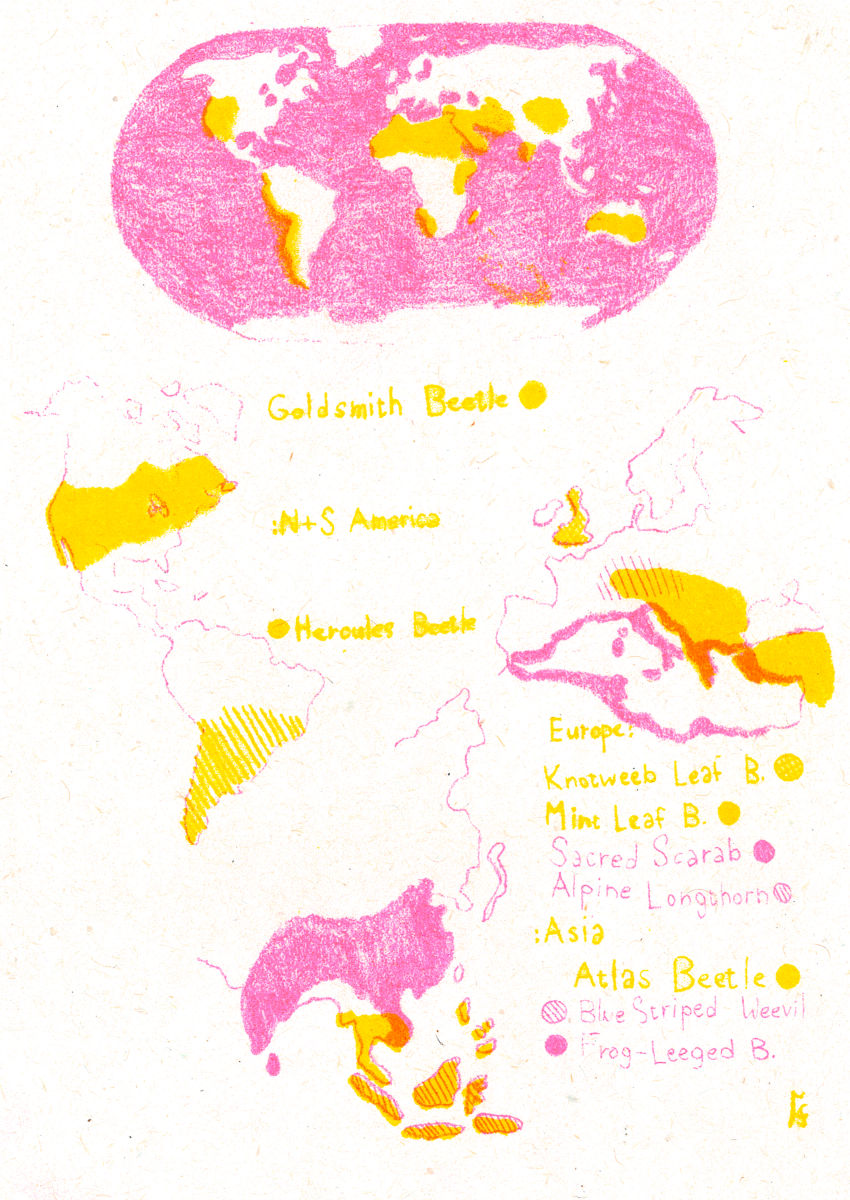 Goldsmith Beetle
:N+S America
Hercules Beetle
Europe:
Knotweeb Leaf B.
Mint Leaf B.
Sacred Scarab
Alpine Longthorn
:Asia
Atlas Beetle
Blue Striped Weevil
Frog-Leeged B.